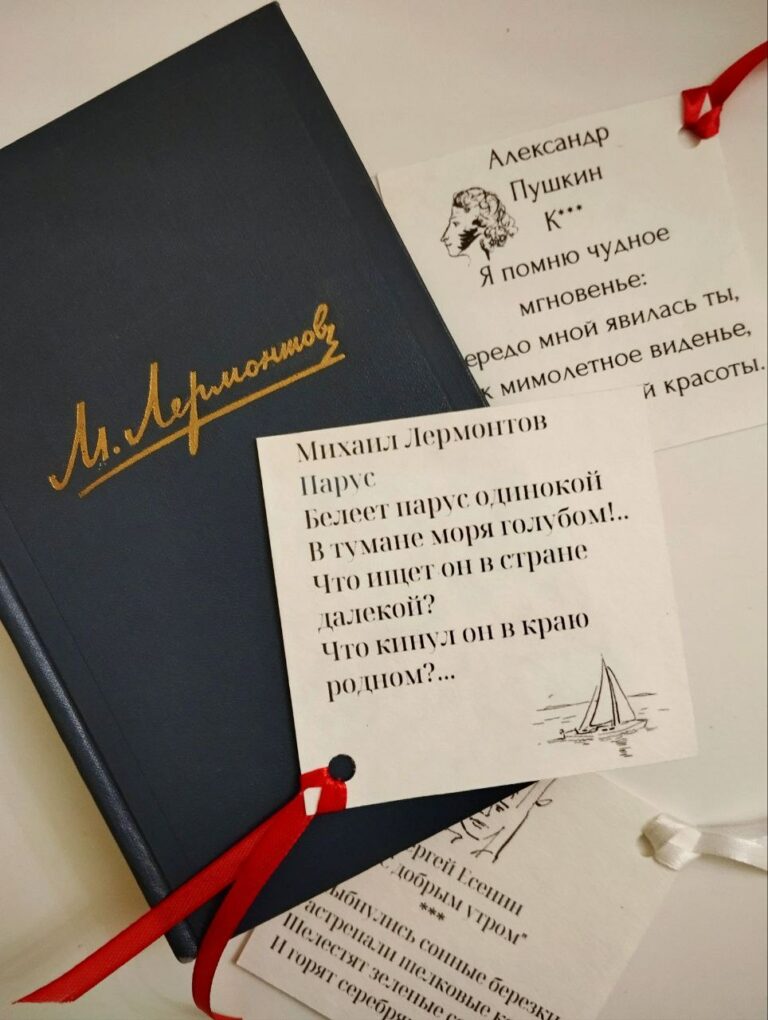 М. Лермонтов
Александр
Пушкин
К***
Я помню чудное
мгновенье:
мной явилась ты,
мимолетное виденье,
красоты.
Михаил Лермонтов
Парус
Белеет парус одинокой
В тумане моря голубом!..
Что ищет он в стране
далекой?
Что кинул он в краю
родном?...
Есенин
добрым утром"
***
сонные березки
шелковые
Шелестят зеленые
И горят